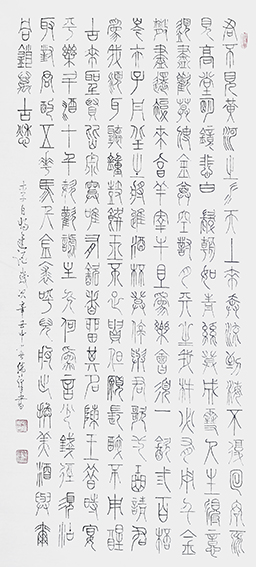 君不見黃河之水天上來奔流到海不復回君不
見高堂明鏡悲白髮朝如青絲暮成雪人生得意
須盡歡莫使金尊空對月天生我材必有用千金
散盡還復來烹羊宰牛且為樂會須一飲三百杯
岑夫子丹丘生將進酒杯莫停與君歌一曲請君
為我傾耳聽鐘鼓饌玉不足貴但願長醉不用醒
古來聖賢皆寂寞唯有飲者留其名陳王昔時宴
平樂斗酒十千恣歡謔主人何為言少錢徑須沽
取對君酌五花馬千金裘呼兒將出換美酒與爾
同銷萬古愁
李白將進酒歲次辛丑